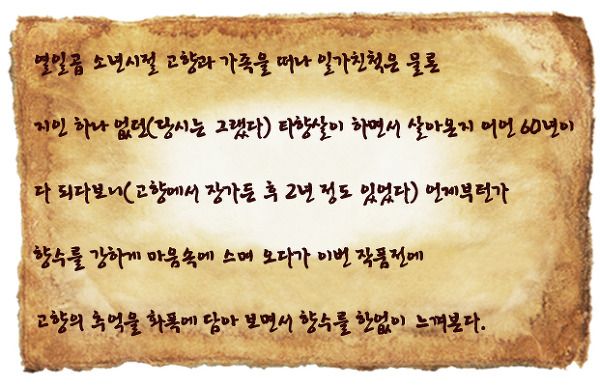 열일곱 소년시절 고향과 가족을 떠나 일가친척은 물론
지인 하나 없던(당시는 그랬다) 타향살이 하면서 살아온지 어언 60년이
다 되다보니(고향에서 장가든 후 2년 정도 있었다) 언제부턴가
향수를 강하게 마음속에 스며 오다가 이번 작품전에
고향의 추억을 화폭에 담아 보면서 향수를 한없이 느껴본다.